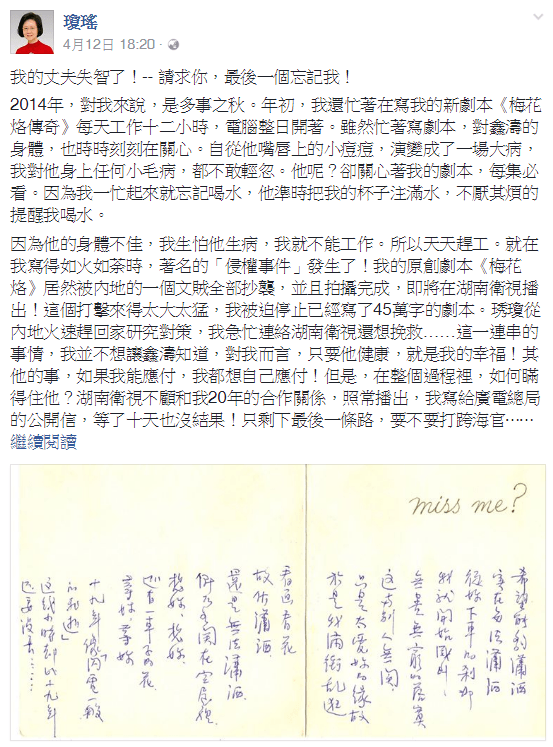 瓊瑤
4月12日 18:20 ·
我的丈夫失智了！-- 請求你，最後一個忘記我！
2014年，對我來說，是多事之秋。年初，我還忙著在寫我的新劇本《梅花
烙傳奇》每天工作十二小時，電腦整日開著。雖然忙著寫劇本，對鑫濤的
身體，也時時刻刻在關心。自從他嘴唇上的小痘痘，演變成了一場大病，
我對他身上任何小毛病，都不敢輕忽。他呢？卻關心著我的劇本，每集必
看。因為我一忙起來就忘記喝水，他準時把我的杯子注滿水，不厭其煩的
提醒我喝水。
因為他的身體不佳，我生怕他生病，我就不能工作。所以天天趕工。就在
我寫得如火如荼時，著名的「侵權事件」發生了！我的原創劇本《梅花
烙》居然被內地的一個文賊全部抄襲，並且拍攝完成，即將在湖南衛視播
出！這個打擊來得太大太猛，我被迫停止已經寫了45萬字的劇本。琇瓊從
內地火速趕回家研究對策，我急忙連絡湖南衛視還想挽救……這一連串的
事情，我並不想讓鑫濤知道，對我而言，只要他健康，就是我的幸福！其
他的事，如果我能應付，我都想自己應付！但是，在整個過程裡，如何瞞
得住他？湖南衛視不顧和我20年的合作關係，照常播出，我寫給廣電總局
的公開信，等了十天也沒結果！只剩下最後一條路，要不要打跨海官……
繼續閱讀
miss me?
希望能夠瀟洒
實在無法瀟洒
從妳下車的剎那
我就開始感到
無窮的落寞
這與別人無關
只是太愛妳的緣故
於是我滿街亂逛
看画看花
故作瀟洒
還是無法瀟洒
在空房裡
想妳、想妳
還有一車子的花
等妳、等妳
十九年像閃電一般
的飛逝
這幾小時卻比十九年
還要漫長……